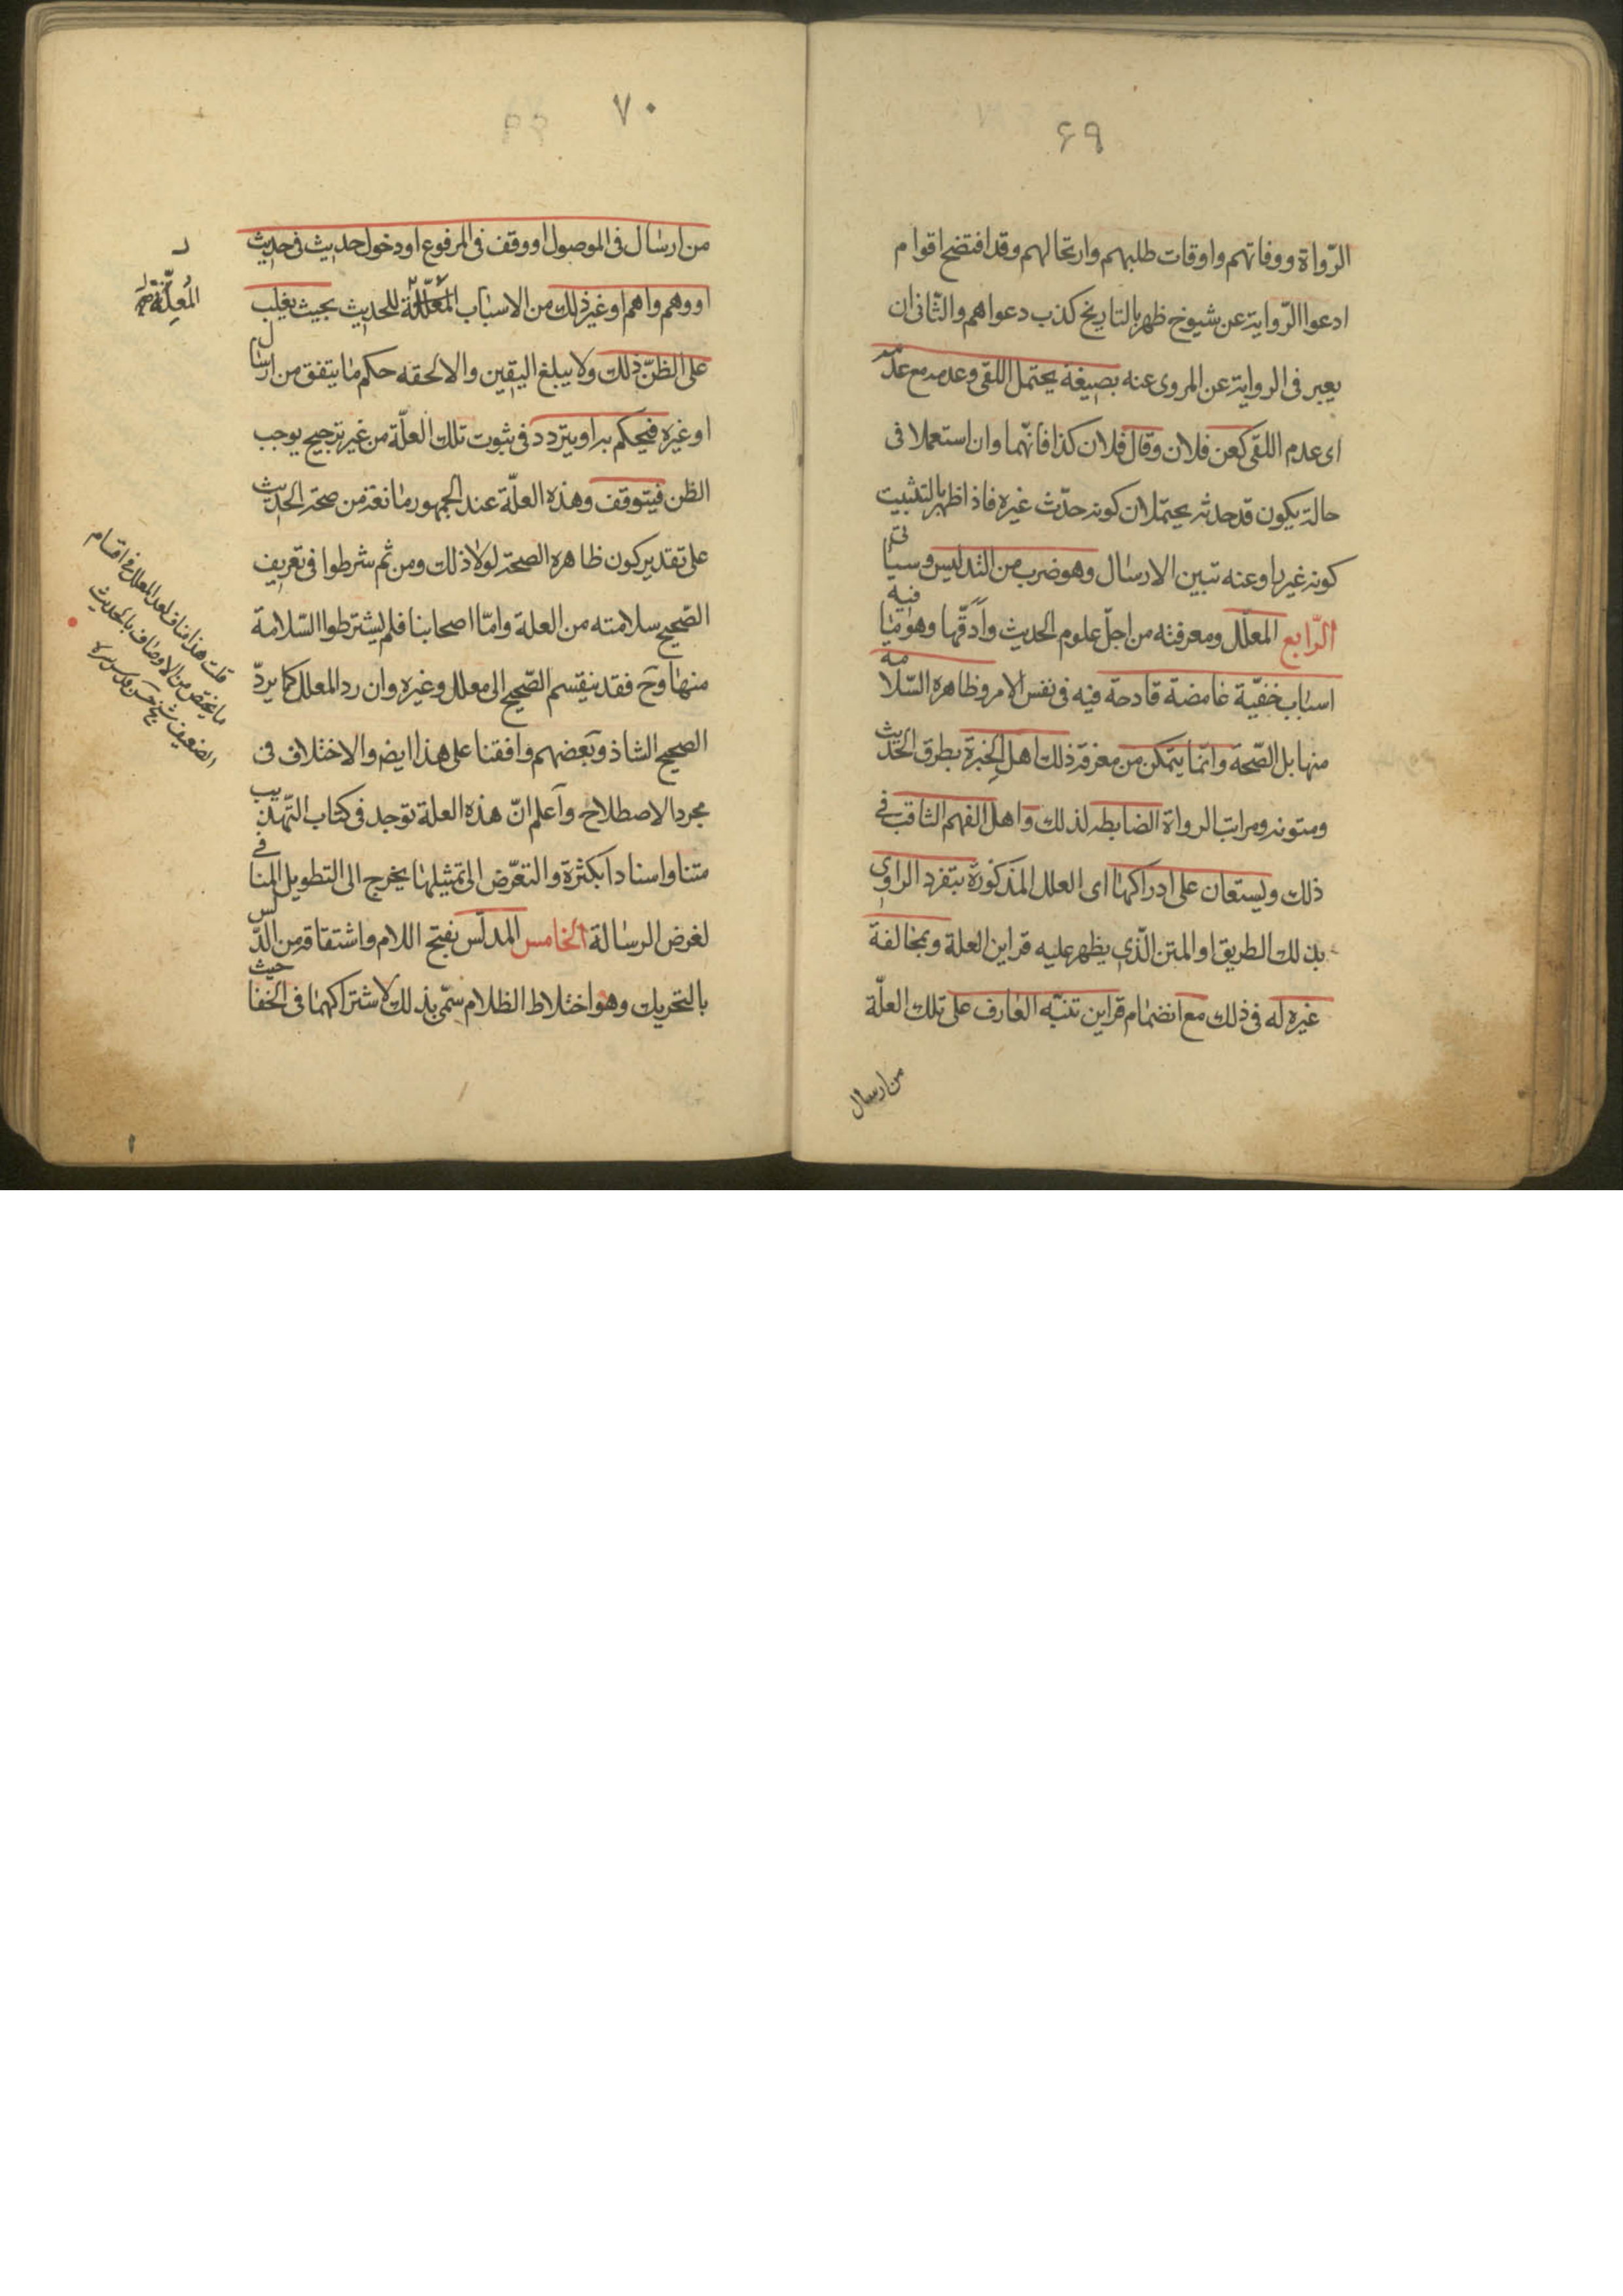 ٦٩
الرّواة ووفاتهم واوقات طلبهم وارتحالهم وقد افتضح اقوام
ادعوا الرّواية عن شيوخ ظهر بالتاريخ كذب دعواهم والثّاني ان
يعبر في الرواية عن المروى عنه بصيغة يحتمل اللقى وعدمه مع عدمه
اى عدم اللقى كعن فلان وقال فلان كذا فانّهما وان استعملا في
حالة يكون قد حدثه يحتملان كونه حدّث غيره فاذا ظهر بالتثبيت
كونه غير راو عنه تبين الارسال وهو ضرب من التدليس وسياتى
الرّابع المعلّل ومعرفته من اجلّ علوم الحديث وأدقّها وهو ما فيه
اسباب خفيّة غامضة قادحة فيه في نفس الامر وظاهره السّلامة
منها بل الصّحة وانّما يتمكن من معرفة ذلك اهل الخبرة بطرق الحديث
ومتونه ومراتب الرواة الضابطه لذلك واهل الفهم الثاقب في
ذلك ويستعان على ادراكها اى العلل المذكورة بتفرد الراوى
بذلك الطريق او المتن الّذي يظهر عليه قراين العلة وبمخالفة
غيره له في ذلك مع انضمام قراين تنبّه العارف على تلك العلّة
من ارسال
٧٠
من ارسال في الموصول او وقف في المرفوع او دخول حديث في حديث
او وهم واهم او غير ذلك من الاسباب المعلّلة للحديث بحيث يغلب
على الظنّ ذلك ولا يبلغ اليقين والا لحقه حكم ما يتفق من ارسال
او غيره فيحكم به او يتردد في ثبوت تلك العلّة من غير ترجيح يوجب
الظن فيتوقف وهذه العلّة عند الجمهور مانعة من صحة الحديث
على تقدير كون ظاهره الصحة لولا ذلك ومن ثم شرطوا في تعريف
الصّحيح سلامته من العلة وامّا اصحابنا فلم يشترطوا السّلامة
منها وح فقد ينقسم الصّحيح الى معلل وغيره وان رد المعلل كما يردّ
الصحيح الشاذ وبعضهم وافقنا على هذا ايض والاختلاف في
مجرد الاصطلاح وأعلم انّ هذه العلة توجد في كتاب التّهذيب
متنا واسنادا بكثرة والتعرّض الى تمثيلها يخرج الى التطويل المنافي
لغرض الرسالة الخامس المدلّس بفتح اللام واشتقاقه من الدّلس
بالتحريك وهو اختلاط الظلام سمّى بذلك لاشتراكهما في الخفا حيث
المُعِلّة
قلت هذا مناف لعد المعلل في اقسام
ما يختص من الاوصاف بالحديث
الضعيف شيخ حسن قدس سره